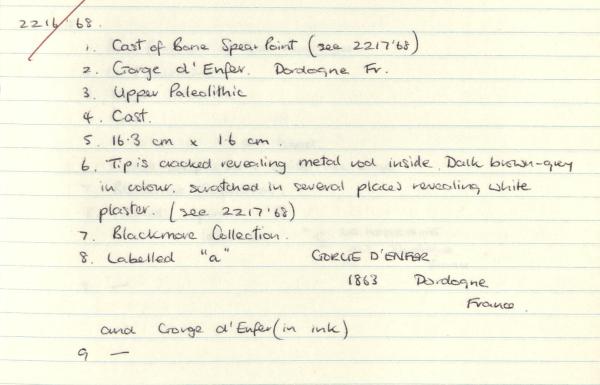 2216'68.
1. Cast of Bone Spear Point (see 2217'68)
2. Gorge d'Enfer. Dordogne Fr.
3. Upper Paleolithic
4. Cast.
5. 16.3 cm x 1.6 cm.
6. Tip is cracked revealing metal rod inside. Dark brown-grey
in colour. scratched in several places revealing white
plaster. (see 2217'68)
7. Blackmore Collection.
8. Labelled "a" GORGE D'ENFER
1863 Dordogne
France.
and Gorge d'Enfer (in ink)
9 —